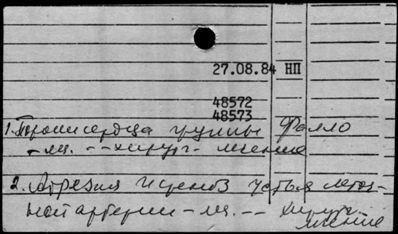 27.08.84 НП
48572
48573
1. Пороки сердца группы Фалло
- хирург. лечение
2. Атрезия и стеноз устья легоч-
ной артерии - -- хирург.
лечение